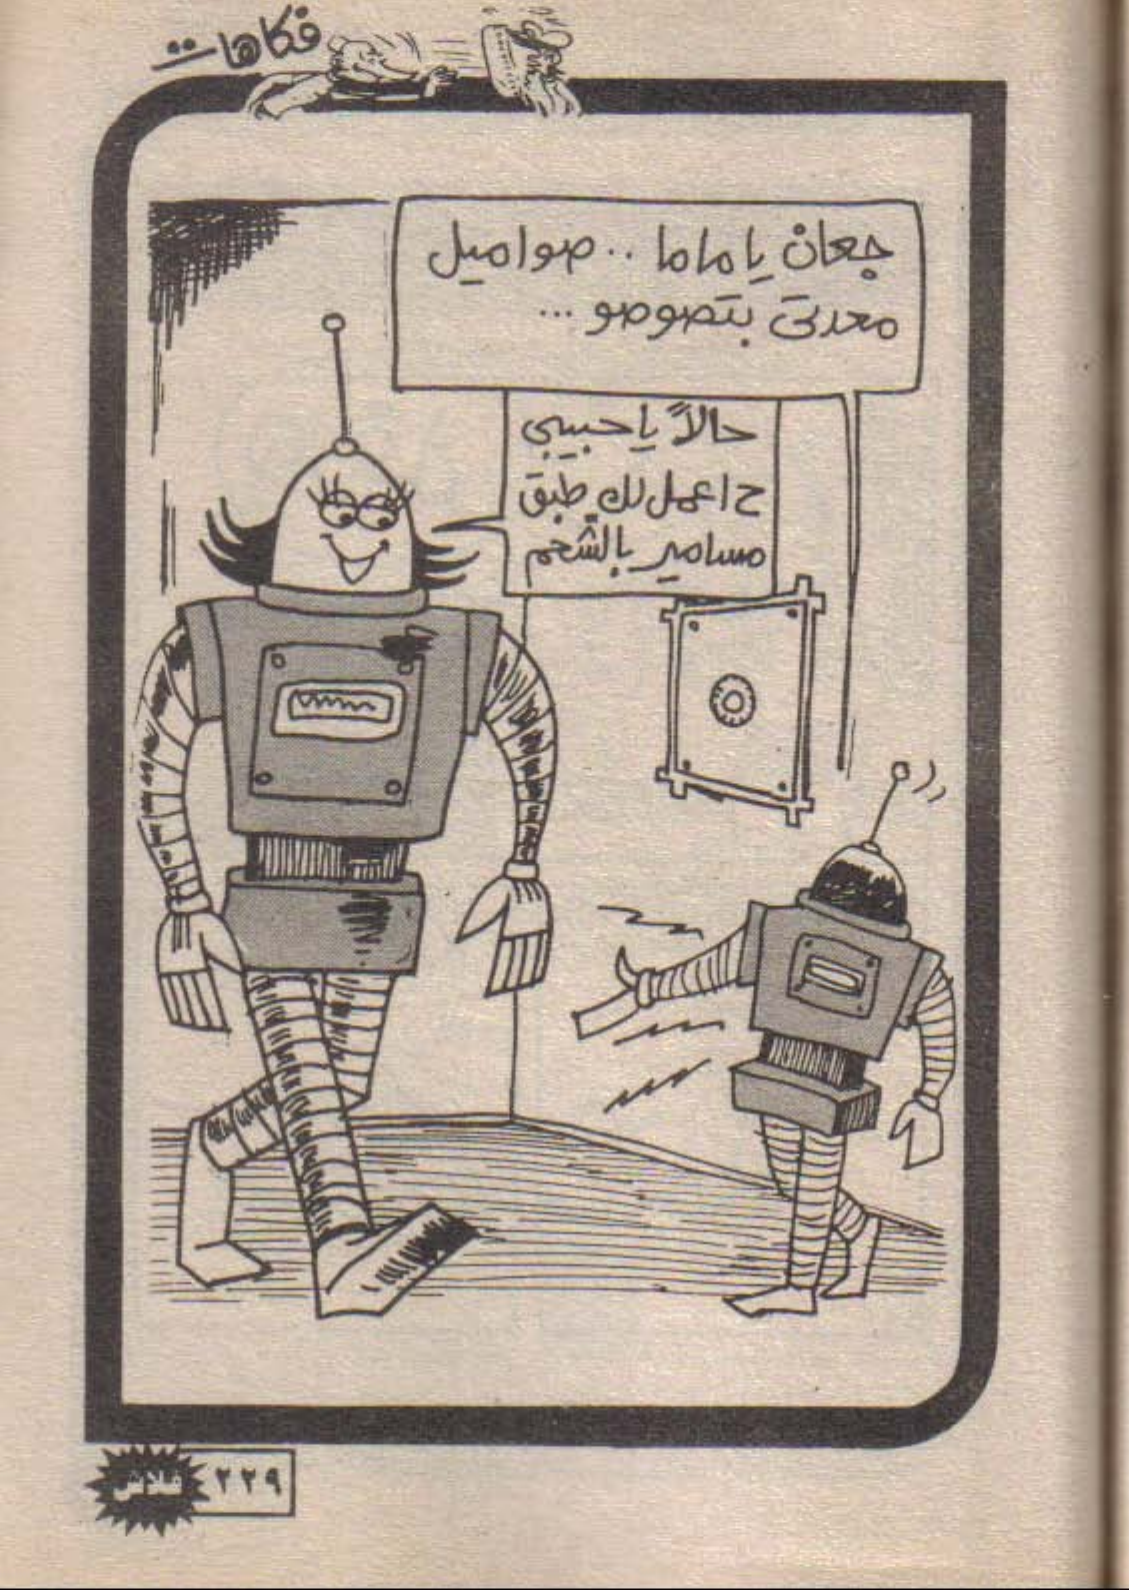 فكاهات
جعان يا ماما .. صواميل
معدتى بتصوصو ...
حالاً يا حبيبى
ح اعمل لك طبق
مسامير بالشحم
فلاش
٢٢٩